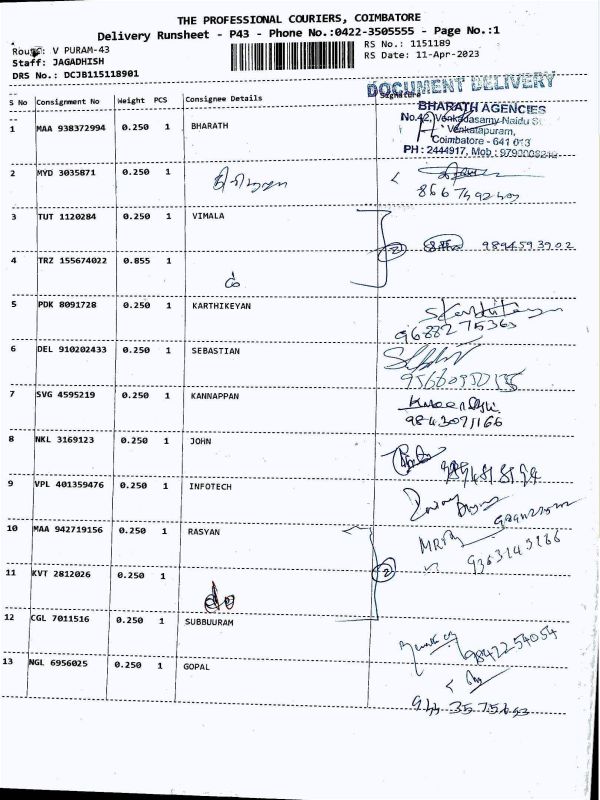 THE PROFESSIONAL COURIERS, COIMBATORE
Delivery Runsheet - P43 - Phone No.:0422-3505555 - Page No.:1
Route: V PURAM-43
RS No.: 1151189
Staff: JAGADHISH
RS Date: 11-Apr-2023
DRS No.: DCJB115118901
DOCUMENT DELIVERY
S No Consignment No Weight PCS Consignee Details Signature
BHARATH AGENCIES
No.42, Venkadasamy Naidu St.
Venkatapuram,
Coimbatore - 641 013
PH : 2444917, Mob :
1 MAA 938372994 0.250 1 BHARATH
2 MYD 3035871 0.250 1
3 TUT 1120284 0.250 1 VIMALA
2 9894593902
4 TRZ 155674022 0.855 1
5 PDK 8091728 0.250 1 KARTHIKEYAN
9688275363
6 DEL 910202433 0.250 1 SEBASTIAN
7 SVG 4595219 0.250 1 KANNAPPAN
9843071166
8 NKL 3169123 0.250 1 JOHN
9 VPL 401359476 0.250 1 INFOTECH
10 MAA 942719156 0.250 1 RASYAN
2
11 KVT 2812026 0.250 1
do
12 CGL 7011516 0.250 1 SUBBUURAM
9842254054
13 NGL 6956025 0.250 1 GOPAL